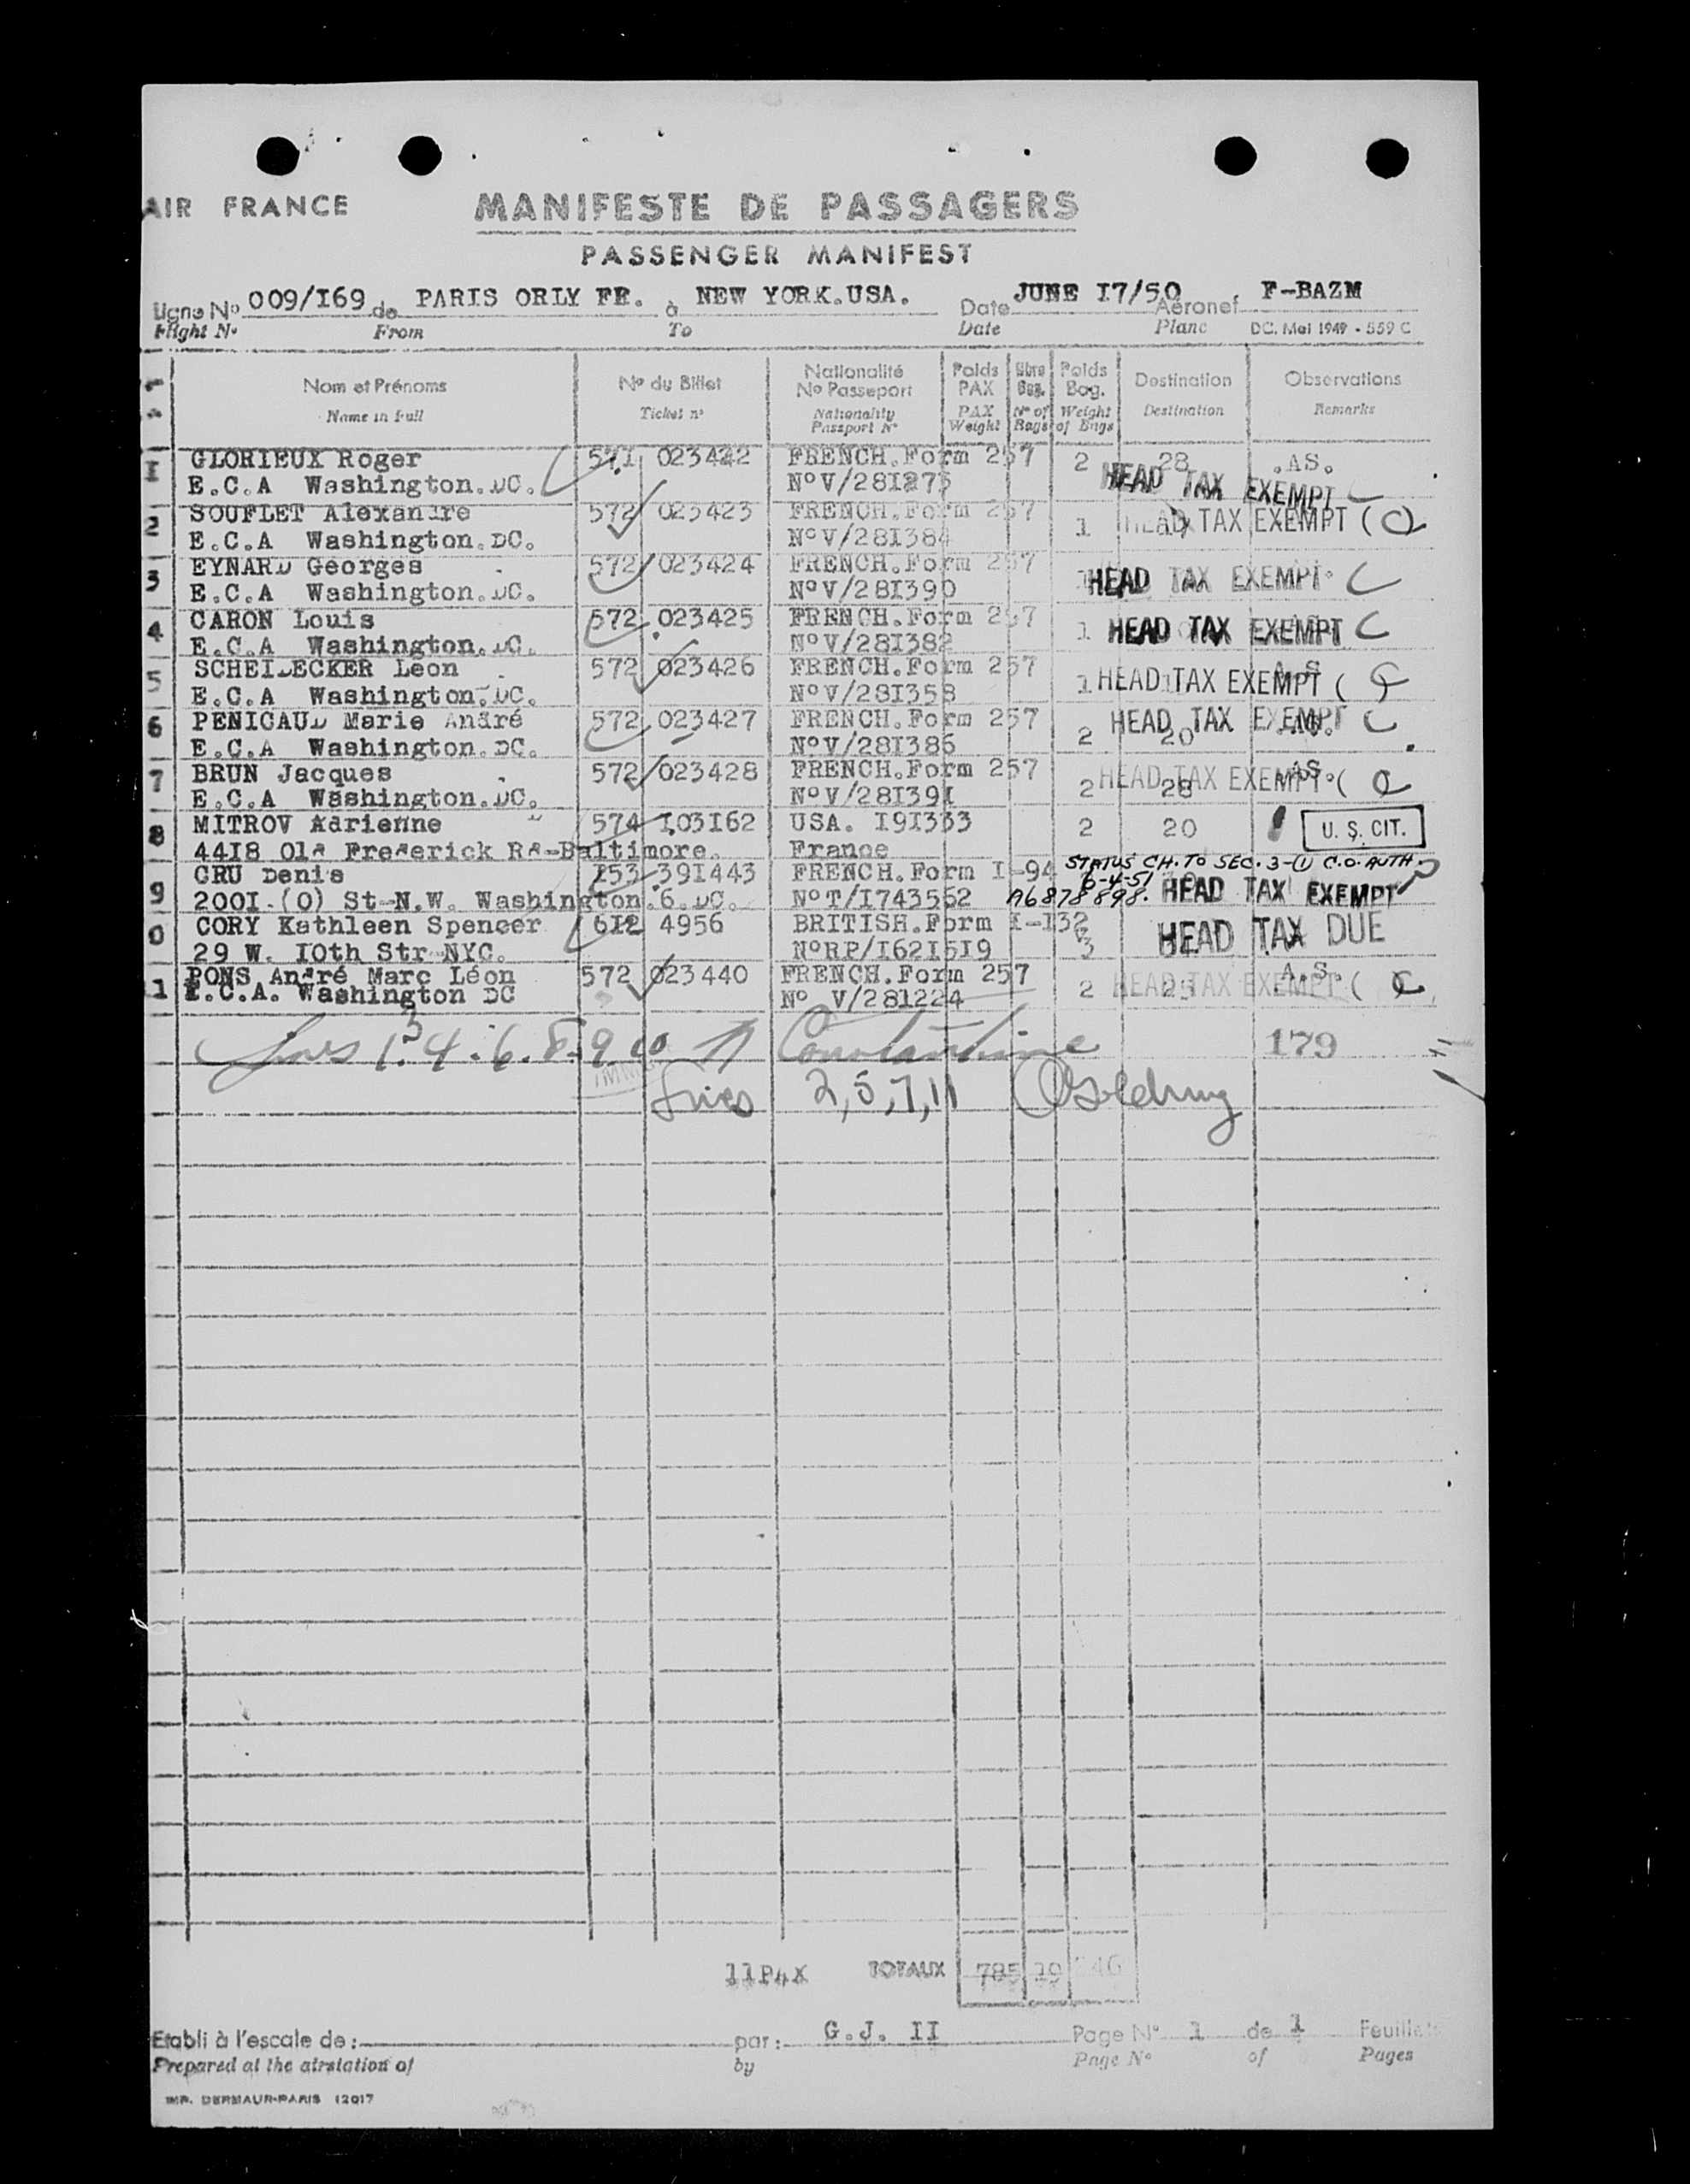 AIR FRANCE
MANIFESTE DE PASSAGERS
PASSENGER MANIFEST
Ligne No 009/I69 de PARIS ORLY FR. à NEW YORK.USA. Date JUNE I7/50 Aéronef F-BAZM
Flight No From To Date Plane DC. Mai 1949 - 559 C
Nom et Prénoms No du Billet Nationalité No Passeport Poids PAX Nbre Bag. Poids Bag. Destination Observations
Name in full Ticket no Nationality Passport No PAX Weight No of Bags Weight of Bags Destination Remarks
I GLORIEUX Roger 571 023422 FRENCH.Form 257 2 28 .AS.
E.C.A Washington.DC. NoV/281275 HEAD TAX EXEMPT
2 SOUFLET Alexandre 572 023423 FRENCH.Form 257
E.C.A Washington.DC. NoV/28I384 1 HEAD TAX EXEMPT (C)
3 EYNARD Georges 572 023424 FRENCH.Form 257
E.C.A Washington.DC. NoV/28I390 HEAD TAX EXEMPT C
4 CARON Louis 572 023425 FRENCH.Form 257
E.C.A Washington.DC. NoV/28I382 1 HEAD TAX EXEMPT C
5 SCHEIDECKER Léon 572 023426 FRENCH.Form 257 A.S
E.C.A Washington.DC. NoV/28I358 1 HEAD TAX EXEMPT (
6 PENICAUD Marie André 572 023427 FRENCH.Form 257 HEAD TAX EXEMPT C
E.C.A Washington.DC. NoV/28I386 2 20
7 BRUN Jacques 572 023428 FRENCH.Form 257 AS.
E.C.A Washington.DC. NoV/28I391 2 28 HEAD TAX EXEMPT (
8 MITROV Adrienne 574 I03I62 USA. I9I333 2 20 U.S. CIT.
44I8 Old Frederick Rd-Baltimore. France
STATUS CH. TO SEC. 3-(1) C.O. AUTH.
9 CRU Denis 253 391443 FRENCH.Form I-94 6-4-51
200I.(O) St-N.W. Washington.6.DC. NoT/I743562 A6878898. HEAD TAX EXEMPT
0 CORY Kathleen Spencer 612 4956 BRITISH.Form I-I32
29 W. IOth Str NYC. NoRP/I62I519 3 HEAD TAX DUE
1 PONS André Marc Léon 572 023440 FRENCH.Form 257 A.S.
E.C.A. Washington DC No V/281224 2 25 HEAD TAX EXEMPT (
Lines 1.3 4.6.8.9.10 Constantine 179
Lines 2,5,7,11 Goldring
11P4X TOTAUX 785 19 246
Etabli à l'escale de: par: G.J. II Page No 1 de 1 Feuillets
Prepared at the airstation of by Page No of Pages
IMP. DERMAUR-PARIS 12017